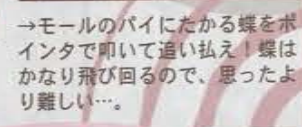 →モールのパイにたかる蝶をポ
インタで叩いて追い払え！蝶は
かなり飛び回るので、思ったよ
り難しい…。